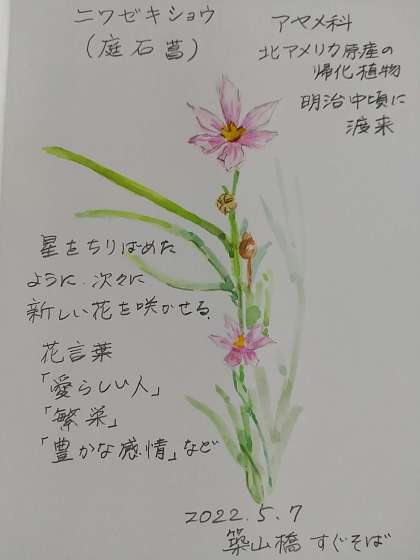 ニワゼキショウ
(庭石菖)
アヤメ科
北アメリカ原産の
帰化植物
明治中頃に
渡来
星をちりばめた
ように、次々に
新しい花を咲かせる。
花言葉
「愛らしい人」
「繁栄」
「豊かな感情」など
2022.5.7
築山橋 すぐそば